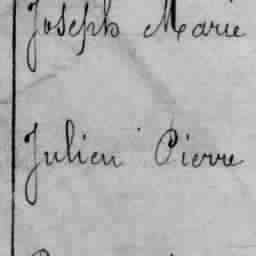 Joseph Marie
Julien Pierre